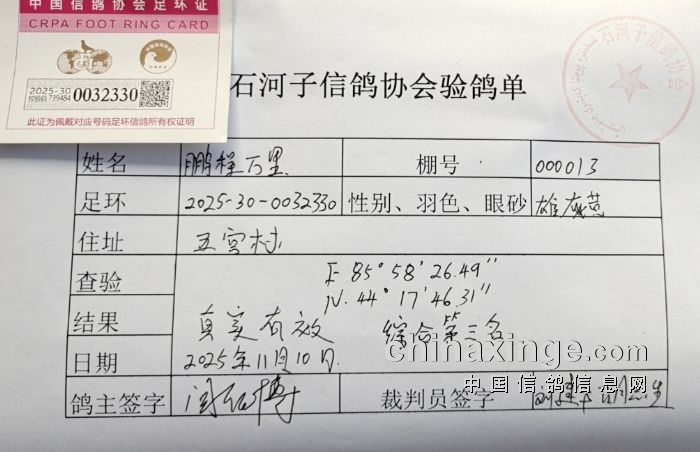 中国信鸽协会足环证
CRPA FOOT RING CARD
2025-30
校验码739484
0032330
此证为佩戴对应号码足环信鸽所有权证明
石河子信鸽协会
石河子信鸽协会验鸽单
姓名 鹏程万里 棚号 000013
足环 2025-30-0032330 性别、羽色、眼砂 雄
住址 五宫村
查验 E 85°58′26.49″
N. 44°17′46.31″
结果 真实有效 综合第三名
日期 2025年11月10日.
chinaxinge.com
中国信鸽信息网
鸽主签字 裁判员签字